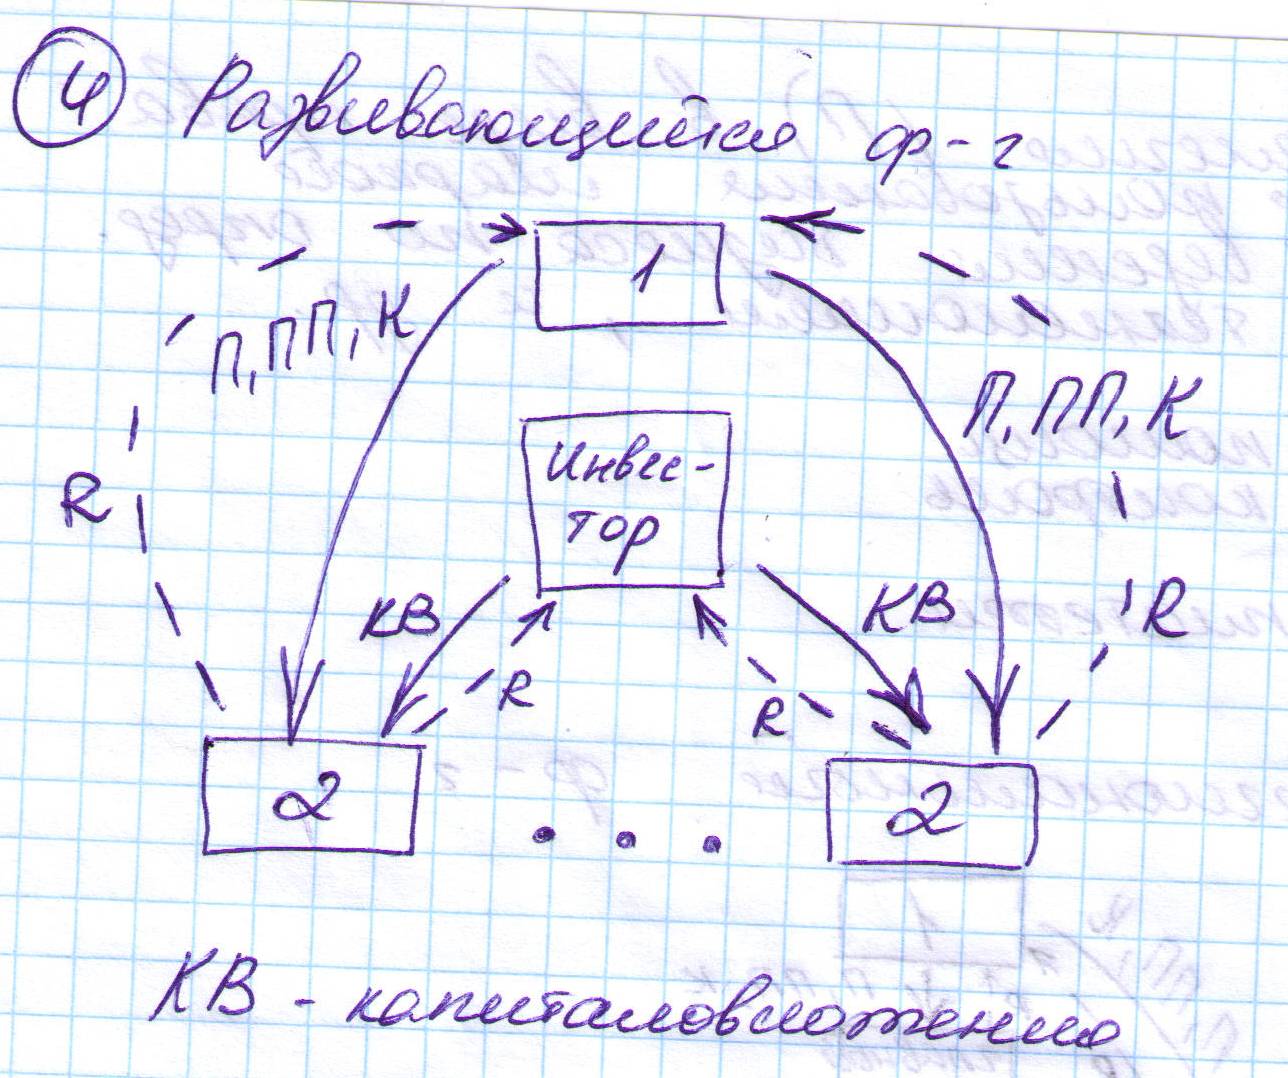 4 Развивающийся ф-г
1
П, ПП, К
П, ПП, К
R
Инвес-
тор
КВ
КВ
R
R
R
2
2
. . .
КВ - капиталовложения